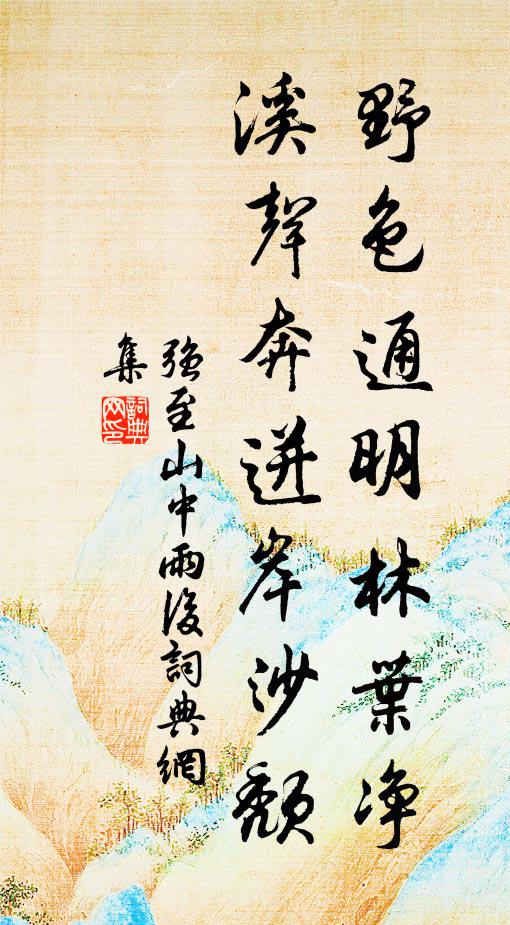 野色通明林葉净
溪聲奔迸岸沙頹
强至山中雨後詞典網
集
詞典網印